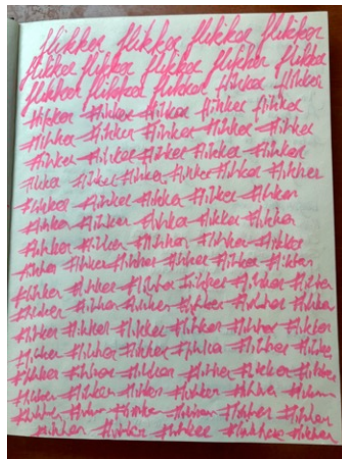 flikker flikker flikker flikker
flikker flikker flikker flikker flikker
flikker flikker flikker flikker flikker
flikker flikker flikker flikker flikker
flikker flikker flikker flikker flikker
flikker flikker flikker flikker flikker
flikker flikker flikker flikker flikker flikker
flikker flikker flikker flikker flikker
flikker flikker flikker flikker flikker
flikker flikker flikker flikker flikker
flikker flikker flikker flikker flikker flikker
flikker flikker flikker flikker flikker flikker
flikker flikker flikker flikker flikker flikker
flikker flikker flikker flikker flikker flikker
flikker flikker flikker flikker flikker flikker
flikker flikker flikker flikker flikker flikker
flikker flikker flikker flikker flikker flikker
flikker flikker flikker flikker flikker flikker
flikker flikker flikker flikker flikker